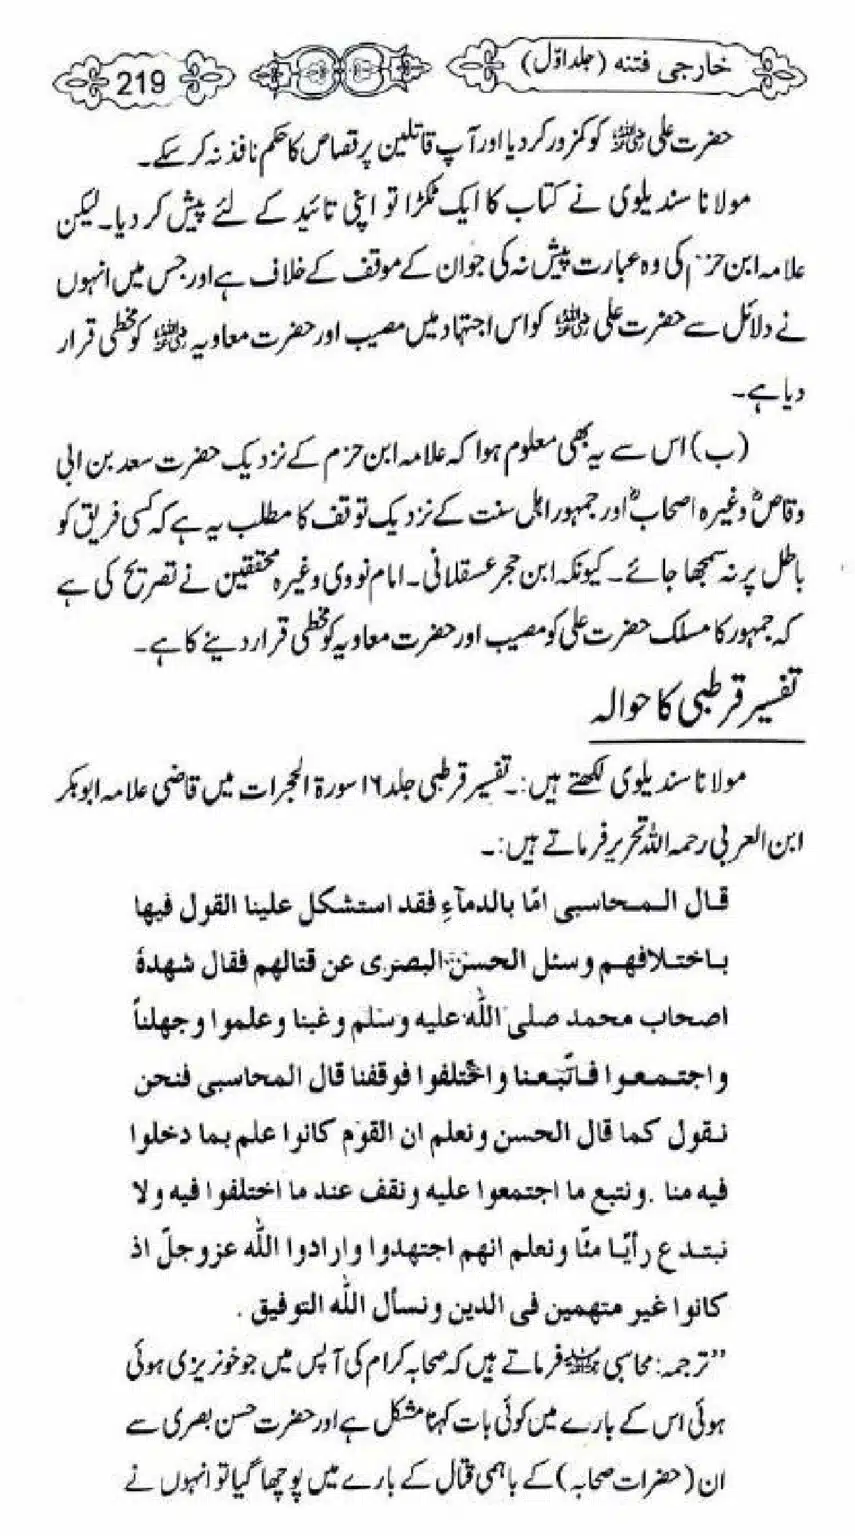 خارجی فتنه (جلد اوّل)
219
حضرت علی رضی اللہ عنہ کو کمزور کر دیا اور آپ قاتلین پر قصاص کا حکم نافذ نہ کر سکے۔
مولانا سندیلوی نے کتاب کا ایک ٹکڑا تو اپنی تائید کے لئے پیش کر دیا۔ لیکن
علامہ ابن حزم کی وہ عبارت پیش نہ کی جو ان کے موقف کے خلاف ہے اور جس میں انہوں
نے دلائل سے حضرت علی رضی اللہ عنہ کو اس اجتہاد میں مصیب اور حضرت معاویہ رضی اللہ عنہ کو مخطی قرار
دیا ہے۔
(ب) اس سے یہ بھی معلوم ہوا کہ علامہ ابن حزم کے نزدیک حضرت سعد بن ابی
وقاصؓ وغیرہ اصحابؓ اور جمہور اہل سنت کے نزدیک توقف کا مطلب یہ ہے کہ کسی فریق کو
باطل پر نہ سمجھا جائے۔ کیونکہ ابن حجر عسقلانی۔ امام نووی وغیرہ محققین نے تصریح کی ہے
کہ جمہور کا مسلک حضرت علی کو مصیب اور حضرت معاویہ کو مخطی قرار دینے کا ہے۔
تفسیر قرطبی کا حوالہ
مولانا سندیلوی لکھتے ہیں:۔ تفسیر قرطبی جلد ۱۶ سورۃ الحجرات میں قاضی علامہ ابوبکر
ابن العربی رحمہ اللہ تحریر فرماتے ہیں:۔
قال المحاسبی امّا بالدمآءِ فقد استشکل علینا القول فیھا
باختلافھم وسئل الحسن البصری عن قتالھم فقال شھدہٗ
اصحاب محمد صلی اللہ علیہ وسلم وغبنا وعلموا وجھلناً
واجتمعوا فاتّبعنا واختلفوا فوقفنا قال المحاسبی فنحن
نقول کما قال الحسن ونعلم ان القوم کانوا علم بما دخلوا
فیہ منا . ونتبع ما اجتمعوا علیہ ونقف عند ما اختلفوا فیہ ولا
نبتدع رأیًا منّا ونعلم انھم اجتھدوا وارادوا اللہ عزوجلّ اذ
کانوا غیر متھمین فی الدین ونسأل اللہ التوفیق .
”ترجمہ: محاسبی رحمۃ اللہ علیہ فرماتے ہیں کہ صحابہ کرام کی آپس میں جو خونریزی ہوئی
ہوئی اس کے بارے میں کوئی بات کہنا مشکل ہے اور حضرت حسن بصری سے
ان (حضرات صحابہ) کے باہمی قتال کے بارے میں پوچھا گیا تو انہوں نے